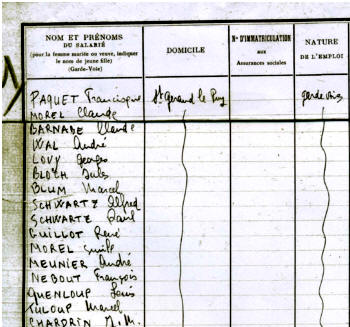 NOM ET PRÉNOMS
DU SALARIÉ
(pour la femme mariée ou veuve, indiquer
le nom de jeune fille)
(Garde-Voie)
DOMICILE
N° D'IMMATRICULATION
aux
Assurances sociales
NATURE
DE L'EMPLOI
PAQUET Francisque St Gerand le Puy garde voies
MOREL Claude
BARNABE Claude
WAL André
LOVY Georges
BLOCH Jules
BLUM Marcel
SCHWARTZ Alfred
SCHWARTZ Paul
GUILLOT René
MOREL Emile
MEUNIER André
NEBOUT François
QUENLOUP Louis
TULOUP Marcel
CHARDRIN J.M.